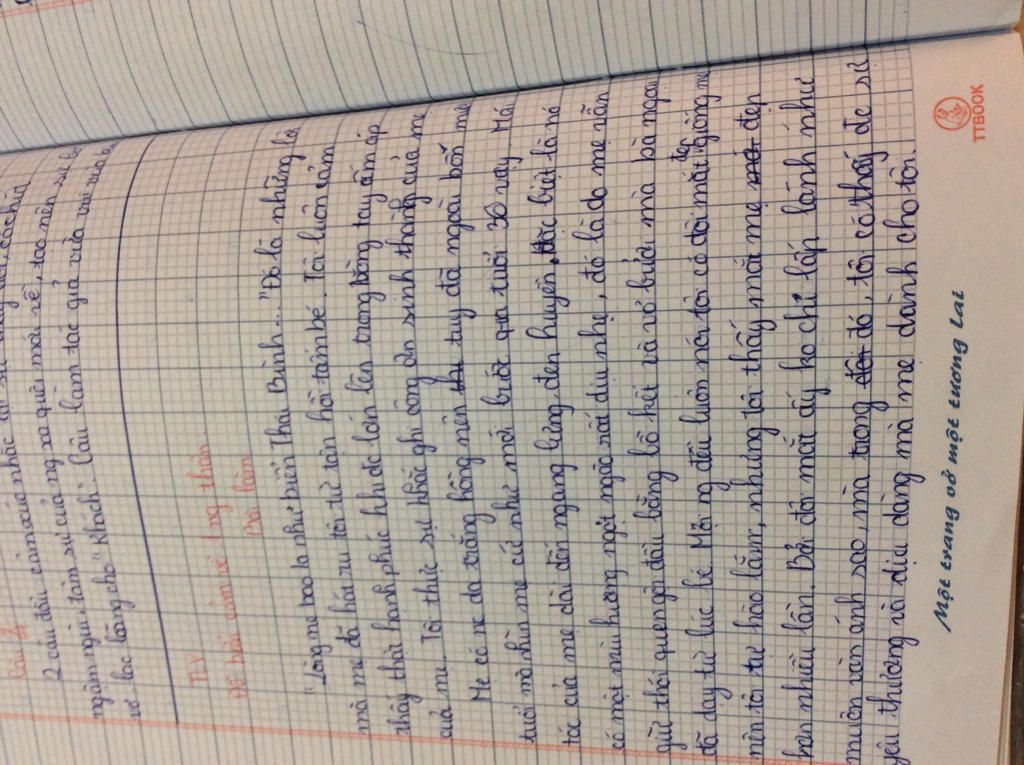 2 câu đầu cảm xúc nhắc
ngậm ngùi, tâm sự của ng xa quê mới về, tạo nên sự b
vẻ lạc lõng cho "khách". Câu làm tác giả vừa vui vừa b
TLV
Đề bài: cảm về 1 ng thân
Bài làm
"Lòng mẹ bao la như biển Thái Bình..." Đó là những lời
mà mẹ đã hát ru tôi từ tận hồi tấm bé. Tôi luôn cảm
thấy thật hạnh phúc khi đc lớn lên trong vòng tay ấm áp
của mẹ. Tôi thực sự khắc ghi công ơn sinh thành của mẹ
Mẹ có nc da trắng hồng nên tuy đã ngoài bốn mươi
tuổi mà nhìn mẹ cứ như mới bước qua tuổi 30 vậy. Mái
tóc của mẹ dài đến ngang lưng, đen huyền, đặc biệt là nó
có một mùi hương ngọt ngào rất dịu nhẹ, đó là do mẹ vẫn
giữ thói quen gội đầu bằng bồ kết và vỏ bưởi mà bà ngoại
đã dạy từ lúc bé. Mọi ng đều luôn nói tôi có đôi mắt đẹp giống mẹ
nên tôi tự hào lắm, nhưng tôi thấy mắt mẹ đẹp
hơn nhiều lần. Bởi đôi mắt ấy ko chỉ lấp lánh như
muôn vàn ánh sao, mà trong đó, tôi có thấy đc sự
yêu thương và dịu dàng mà mẹ dành cho tôi.
Một trang vở một tương lai
TTBOOK